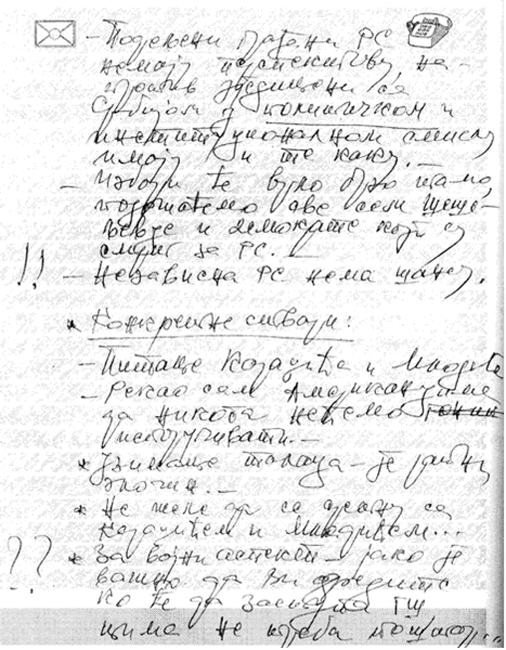 - Подељени грађани РС
немају перспективу, на-
против уједињени са
Србијом у политичком и
институционалном смислу
имају и те какву. –
- Избори ће врло брзо тамо,
подржаћемо све осим Шеше-
љевце и демократе који су
смрт за РС. –
!! - Независна РС нема шансу.
* Конкретне ствари:
- Питање Караџића и Младића
- Рекао сам Американцима
да никога нећемо
испоручивати. –
* Узимање талаца – је ратни
злочин. –
* Не желе да се сретну са
Караџићем и Младићем...
?? * За војни аспект – јако је
важно да Ви одредите
ко ће да заступа
њима не треба